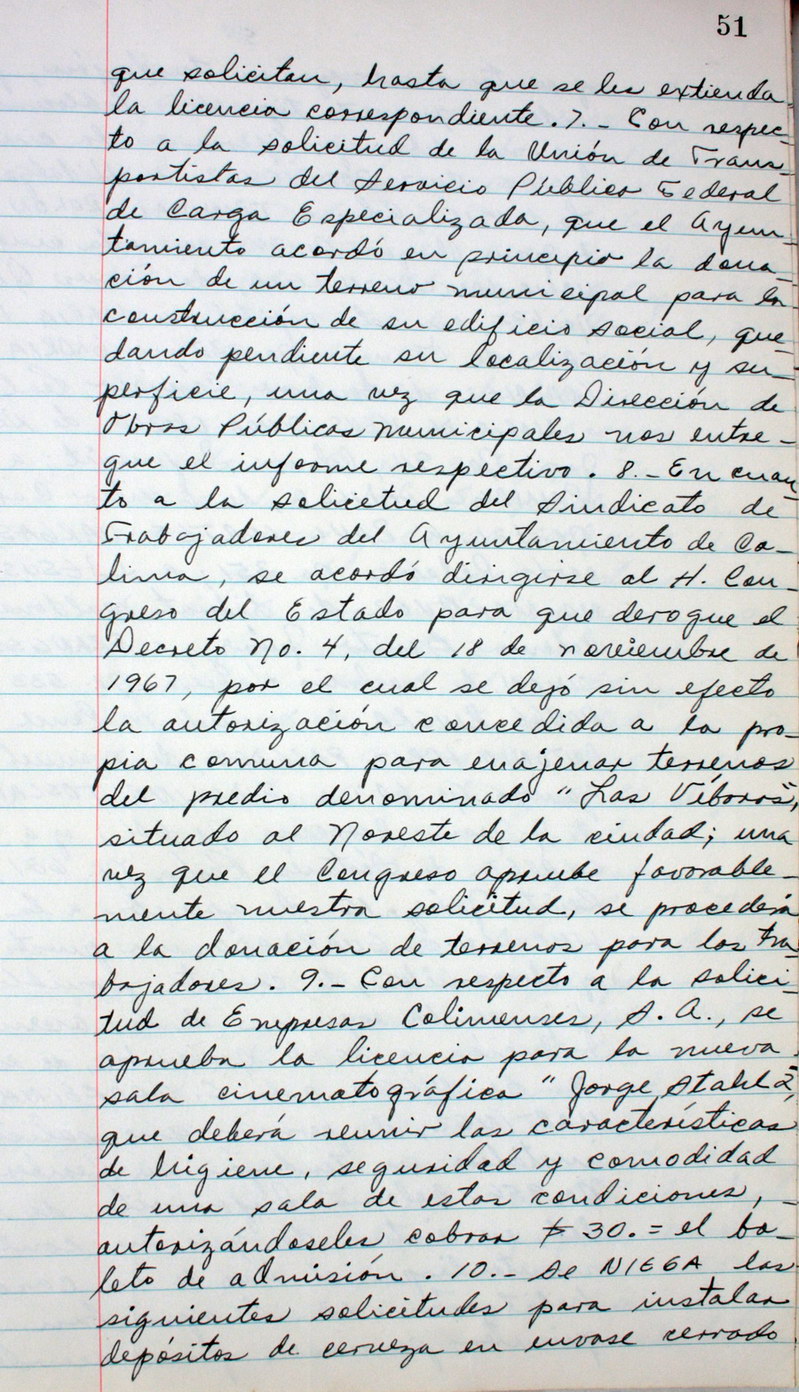 51
que solicitan, hasta que se les extienda
la licencia correspondiente. 7.- Con respec-
to a la solicitud de la Unión de Trans-
portistas del Servicio Público Federal
de Carga Especializada, que el Ayun-
tamiento acordó en principio la dona-
ción de un terreno municipal para la
construcción de su edificio social, que-
dando pendiente su localización y su-
perficie, una vez que la Dirección de
Obras Públicas Municipales nos entre-
gue el informe respectivo. 8.- En cuan-
to a la solicitud del Sindicato de
Trabajadores del Ayuntamiento de Co-
lima, se acordó dirigirse al H. Con-
greso del Estado para que derogue el
Decreto No. 4, del 18 de noviembre de
1967, por el cual se dejó sin efecto
la autorización concedida a la pro-
pia comuna para enajenar terrenos
del predio denominado "Las Víboras",
situado al Noreste de la ciudad; una
vez que el Congreso apruebe favorable-
mente nuestra solicitud, se procederá
a la donación de terrenos para los tra-
bajadores. 9.- Con respecto a la solici-
tud de Empresas Colimenses, S.A., se
aprueba la licencia para la nueva
sala cinematográfica "Jorge Stahl 2",
que deberá reunir las características
de higiene, seguridad y comodidad
de una sala de estas condiciones, -
autorizándoseles cobrar $ 30.= el bo-
leto de admisión. 10.- Se NIEGA las
siguientes solicitudes para instalar
depósitos de cerveza en envase cerrado